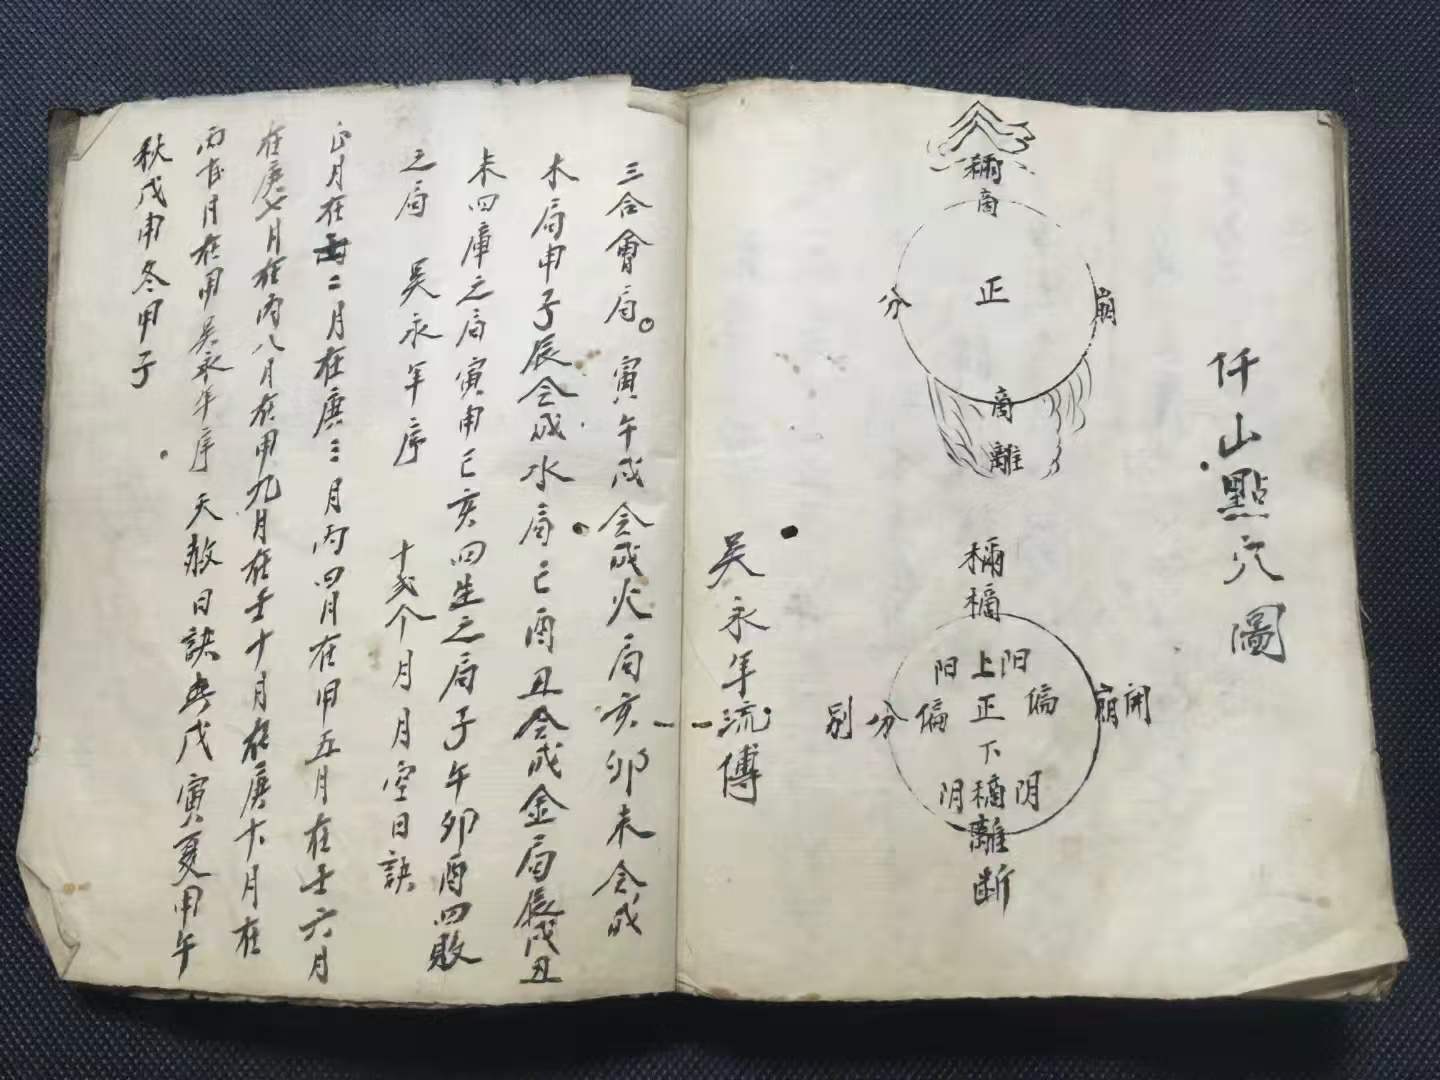 仟山點穴圖
正
分
崩
離
上
阳
阳
偏
正
偏
分
别
崩
開
下
阴
阴
離
断
吴永年流傳
三合會局。寅午戌会成火局亥卯未会成
木局申子辰会成水局巳酉丑会成金局辰戌丑
未四庫之局寅申巳亥四生之局子午卯酉四敗
之局 吴永年序 十弍个月月空日訣
正月在壬二月在庚三月丙四月在甲五月在壬六月
在庚七月在丙八月在甲九月在壬十月在庚十一月在
丙十二月在甲吴永年序 天赦日訣春戊寅夏甲午
秋戊申冬甲子